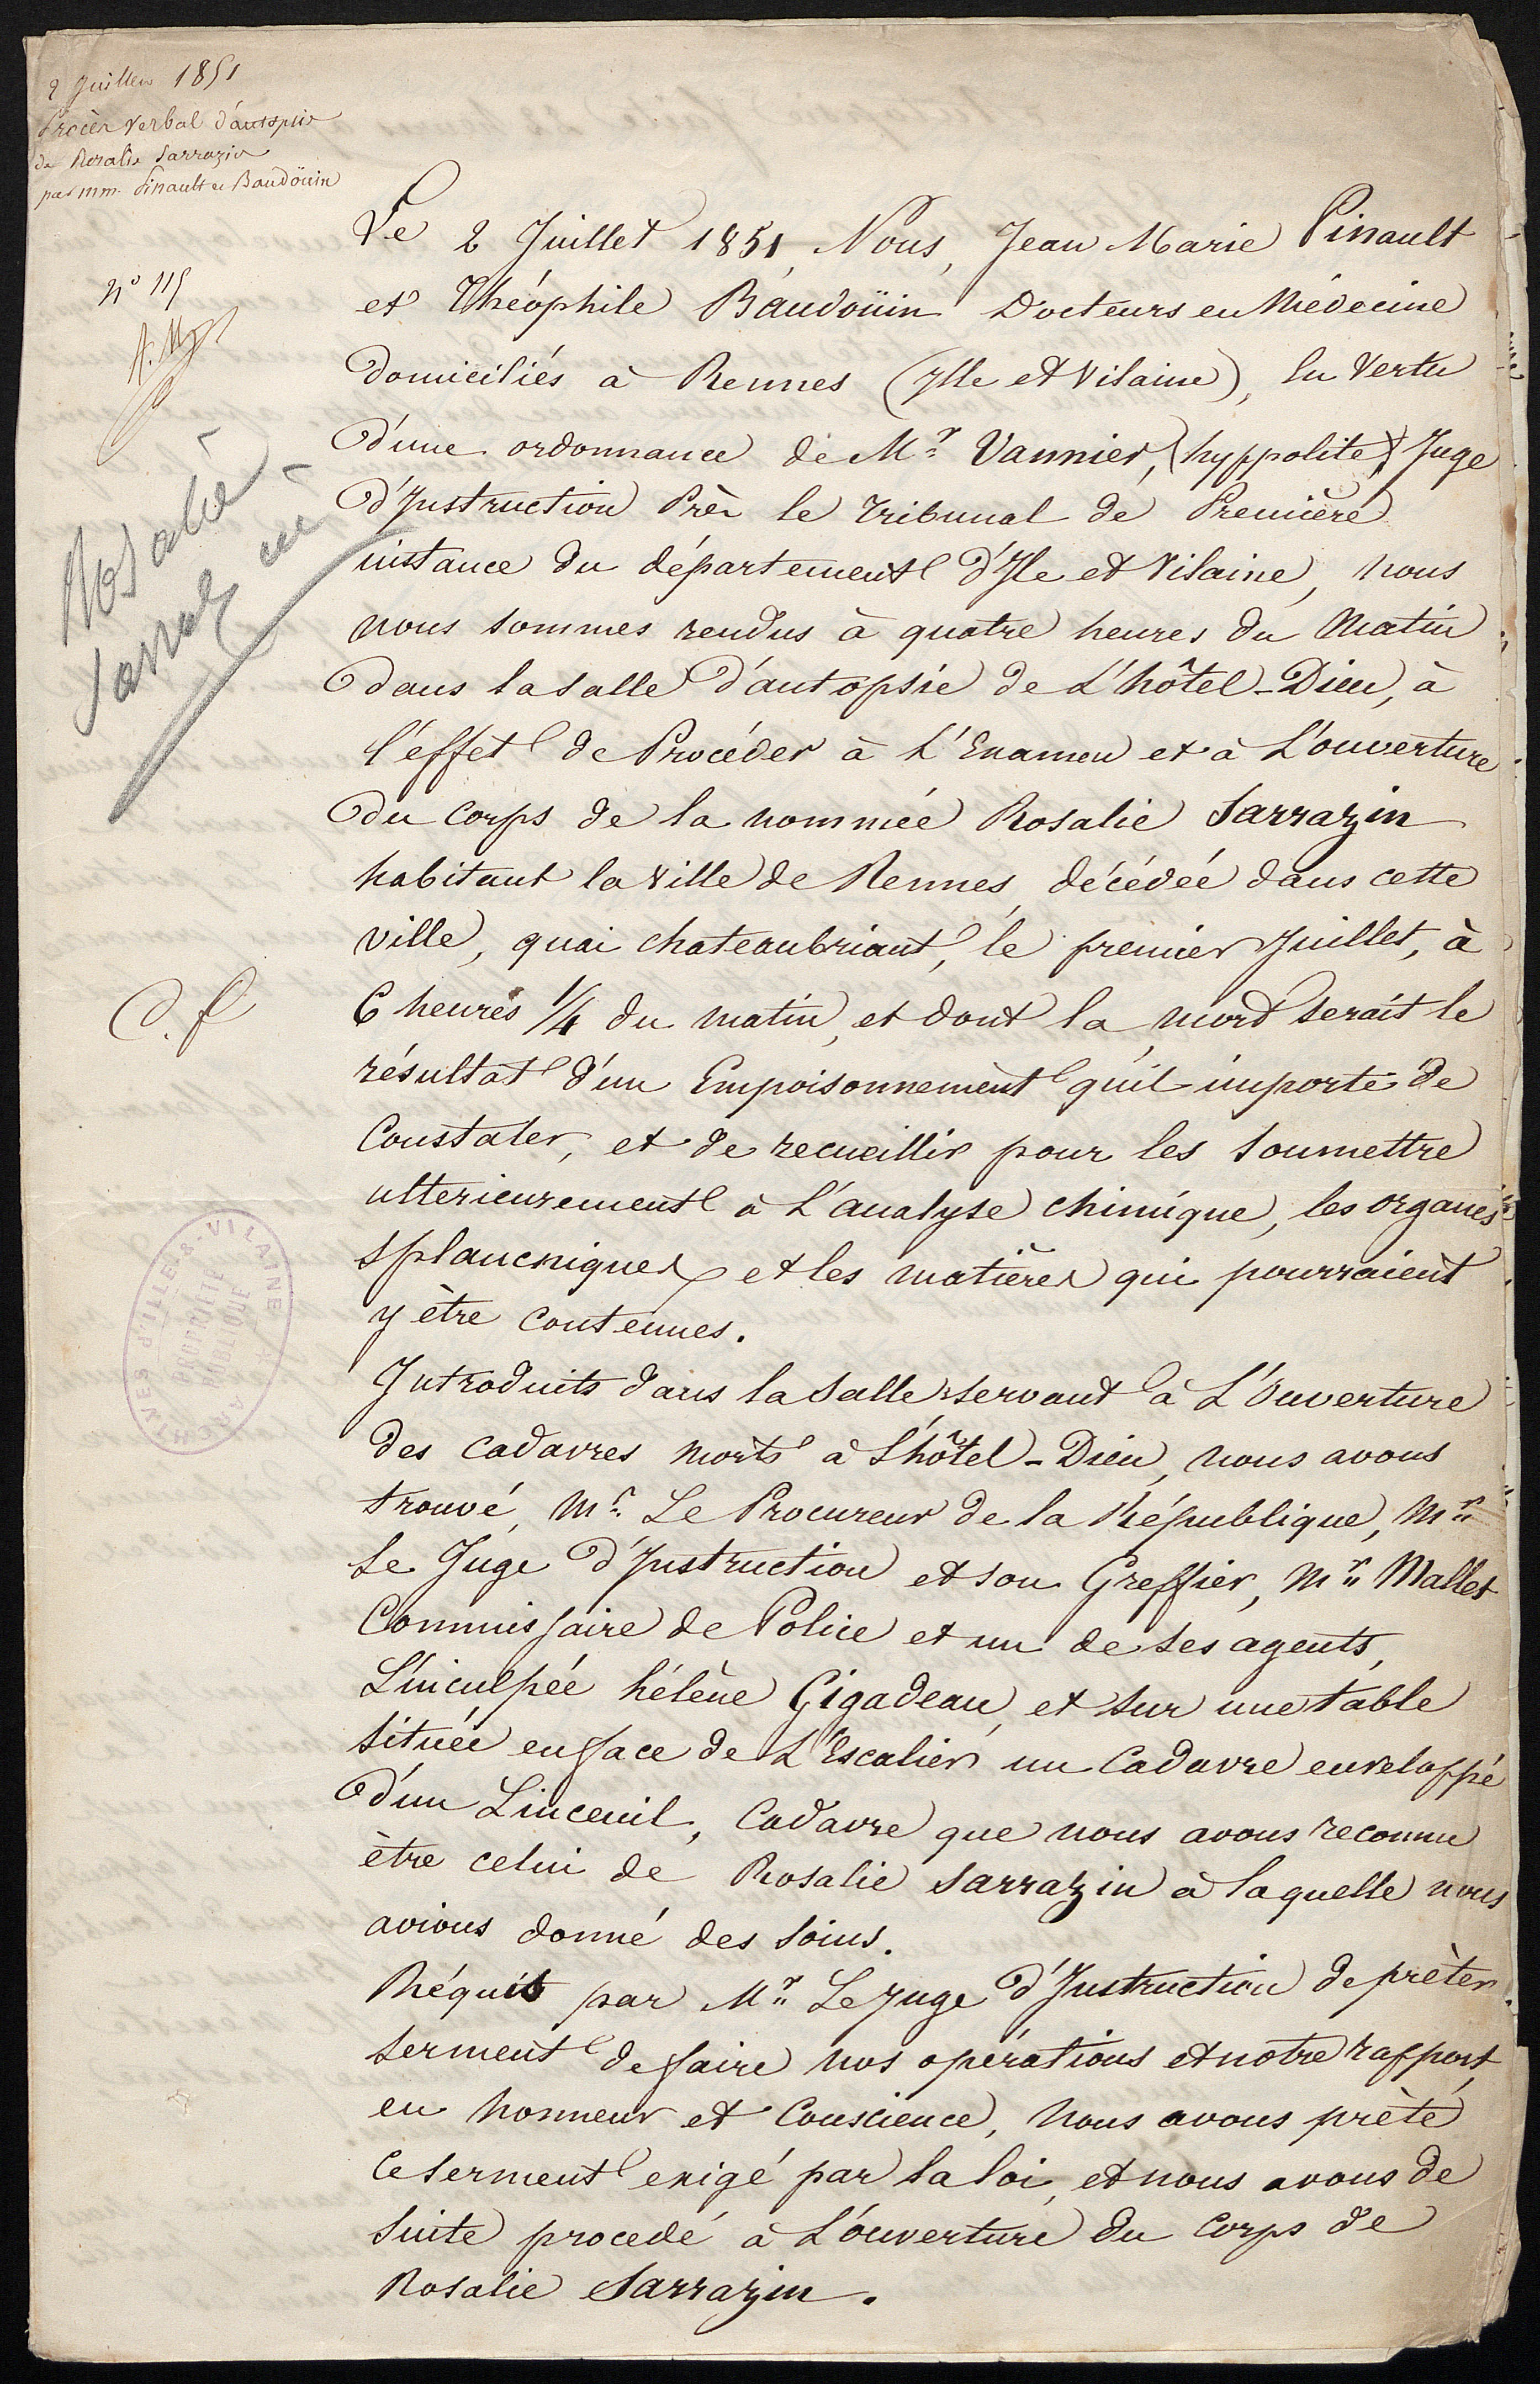 2 Juillet 1851
Procès Verbal d'autopsie
de Rosalie Sarrazin
par mm. Pinault et Baudoüin
N° 115
Rosalie
Sarrazin
Le 2 Juillet 1851, Nous, Jean Marie Pinault
et Théophile Baudoüin Docteurs en Médecine
domiciliés à Rennes (Ylle et Vilaine), En Vertu
d'une ordonnance de Mr Vannier, (hyppolite) Juge
d'Instruction Près le Tribunal de Première
instance du département d'Ile et Vilaine, nous
nous sommes rendus à quatre heures du Matin
dans la salle d'autopsie de L'hôtel-Dieu, à
l'effet de Procéder à L'Examen et à L'ouverture
du corps de la nommée Rosalie Sarrazin
habitant la ville de Rennes, décédée dans cette
ville, quai chateaubriant, le premier Juillet, à
6 heures 1/4 du matin, et dont la mort serait le
résultat d'un Empoisonnement qu'il importe de
Constater, et de recueillir pour les soumettre
ulterieurement à L'analyse chimique, les organes
splancniques et les matières qui pourraient
y être contenues.
Introduits dans la salle servant à L'Ouverture
des cadavres morts à L'hôtel-Dieu, nous avons
trouvé, Mr Le Procureur de la République, Mr
Le Juge d'Instruction et son Greffier, Mr Mallet
Commissaire de Police et un de ses agents,
L'inculpée hélène Gigadeau, et sur une table
située en face de L'Escalier un Cadavre enveloppé
d'un Linceuil, Cadavre que nous avons reconnu
être celui de Rosalie Sarrazin à laquelle nous
avions donné des soins.
Réquis par Mr Le Juge d'Instruction de prèter
serment de faire nos opérations et notre rapport
en honneur et Conscience, Nous avons prèté
Ce serment exigé par la loi, et nous avons de
suite procedé à L'ouverture du Corps de
Rosalie Sarrazin.
ARCHIVES D'ILLE-&-VILAINE
PROPRIÉTÉ
PUBLIQUE